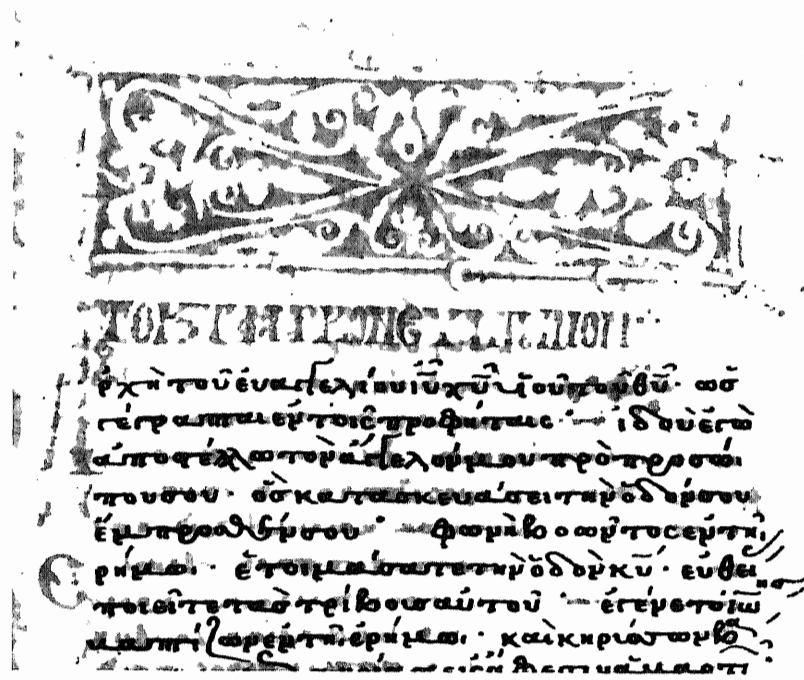 ΤΟ ΚΑΤΑ ΜΑΡΚΟΝ ΕΥΑΓΓΕΛΙΟΝ
ρχὴ τοῦ ἐυαγγελίου ιῡ χῡ υἱοῦ τοῦ θῡ· ὡσ
γέγραπται ἐν τοῖς προφήταις· ἰδοὺ ἐγὼ
ἀποστέλλω τὸν ἄγγελόν μου πρὸ προσώ
που σου· ὃσ κατασκευάσει τὴν ὁδόν σου
ἔμπροσθέν σου· φωνὴ βοῶντος ἐν τῆ
ἐρήμω· ἑτοιμάσατε τὴν ὁδὸν κῡ· εὐθεί
ποιεῖτε τὰσ τρίβουσ αὐτοῦ· ἐγένετο ἰω
βαπτίζων ἐν τῆ ἐρήμω· καὶ κηρύσσων βα